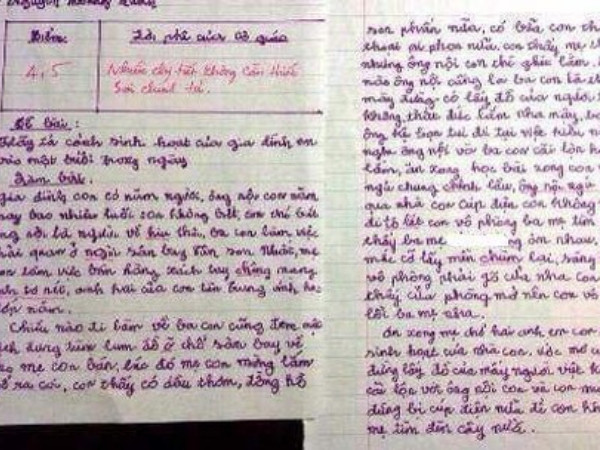 Nguyễn
Điểm:
Lời phê của cô giáo
4,5
Nhiều chi tiết không cần thiết
Sai chính tả.
Đề bài:
Hãy tả cảnh sinh hoạt của gia đình em
vào một buổi trong ngày
Bài làm.
gia đình con có năm người, ông nội con năm
nay bao nhiêu tuổi con không biết, con chỉ biết
ông nội là người về hưu thôi, ba con làm việc
hải quan ở ngài sân bay tân sơn nhất, mẹ
con làm việc bán hàng xách tay chúng mang
anh hai của con tên hưng anh học
lớp năm.
Chiều nào đi làm về ba con cũng đem một
bịch đựng tùm lum đồ ở chỗ sân bay về
mẹ con bán, lúc đó mẹ con mừng lắm
mở ra coi, con thấy có dầu thơm, đồng hồ
son phấn nữa, có bữa con thấy
thoại ai phon nữa, con thấy mẹ
nhưng ông nội con chê ghiếc lắm,
nào ông nội cũng la ba con là
mấy đứng có lấy đồ của người ta
không thất đức lắm nha mấy, ba
tại việc kiểu
nghe ông nội và ba con cãi lộn
lắm, ăn xong học bài xong con
ngủ chung chính lầu, ông nội ngủ
qua nhà con cúp điện con không
đi tò lét con vô phòng ba mẹ tìm
thấy ba mẹ ôm nhau,
mắc cỡ lấy mền chùm lại, sáng
vô phòng phải gõ cửa nha con
thấy cửa phòng mở nên con vô
lỗi ba mẹ nha.
Ăn xong mẹ chở hai anh em con
sinh hoạt của nhà con, ước mơ
đừng lấy đồ của mấy người việt
cãi lộn với ông nội con và con
đừng bị cúp điện nữa để con
mẹ tìm đèn cầy nữa.